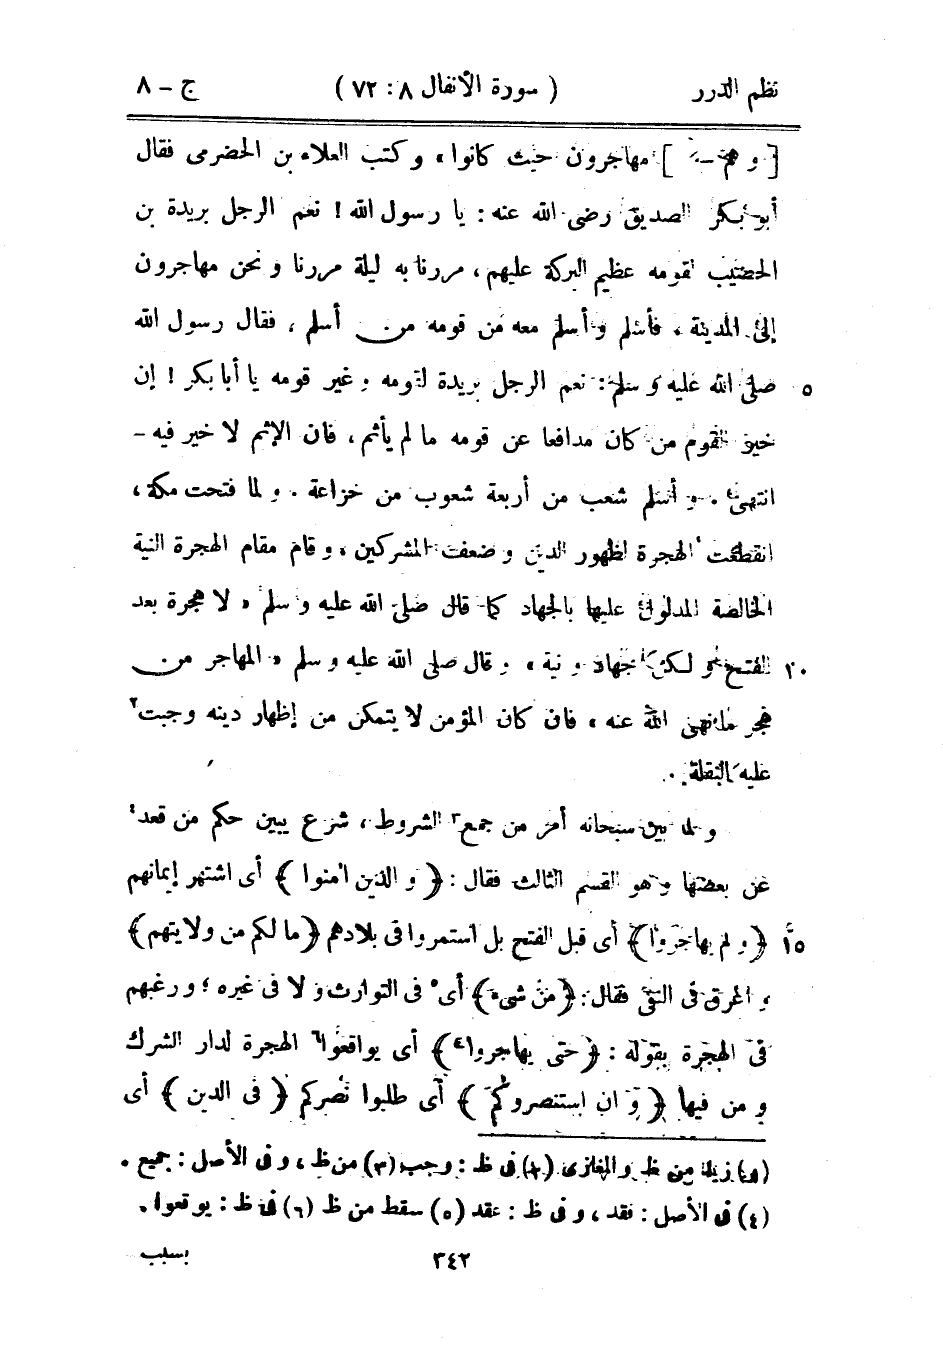 نظم الدرر ( سورة الأنفال ٨ : ٧٢ ) ج - ٨
[ و هم - ١ ] مهاجرون حيث كانوا، و كتب العلاء بن الحضرمى فقال
أبو بكر الصديق رضى الله عنه : يا رسول الله ! نعم الرجل بريدة بن
الحصيب لقومه عظيم البركة عليهم، مررنا به ليلة مررنا و نحن مهاجرون
إلى المدينة، فأسلم و أسلم معه من قومه من أسلم، فقال رسول الله
صلى الله عليه و سلم : نعم الرجل بريدة لقومه و غير قومه يا أبا بكر ! إن ٥
خير القوم من كان مدافعا عن قومه ما لم يأثم، فان الإثم لا خير فيه -
انتهى . و أسلم شعب من أربعة شعوب من خزاعة . و لما فتحت مكة،
انقطعت الهجرة لظهور الدين و ضعف المشركين، و قام مقام الهجرة النية
الخالصة المدلول عليها بالجهاد كما قال صلى الله عليه و سلم « لا هجرة بعد
الفتح و لكن جهاد و نية » و قال صلى الله عليه و سلم « المهاجر من ١٠
هجر ما نهى الله عنه » فان كان المؤمن لا يتمكن من إظهار دينه وجبت٢
عليه النقلة .
و لما بين سبحانه أمر من جمع٣ الشروط، شرع يبين حكم من قعد٤
عن بعضها و هو القسم الثالث فقال : ﴿ و الذين اٰمنوا ﴾ أى اشتهر إيمانهم
﴿ و لم يهاجروا ﴾ أى قبل الفتح بل استمروا فى بلادهم ﴿ ما لكم من ولايتهم ﴾ ١٥
و أغرق فى النفى فقال : ﴿ من شىء ﴾ أى٥ فى التوارث و لا فى غيره ؛ و رغبهم
فى الهجرة بقوله : ﴿ حتى يهاجروا ﴾ أى يواقعوا٦ الهجرة لدار الشرك
و من فيها ﴿ و ان استنصروكم ﴾ أى طلبوا نصركم ﴿ فى الدين ﴾ أى
(١) زيد من ظ و المغازى (٢) فى ظ : وجب (٣) من ظ، و فى الأصل : جميع .
(٤) فى الأصل : نقد، و فى ظ : عقد (٥) سقط من ظ (٦) فى ظ : يوقعوا .
٣٤٢ بسبب